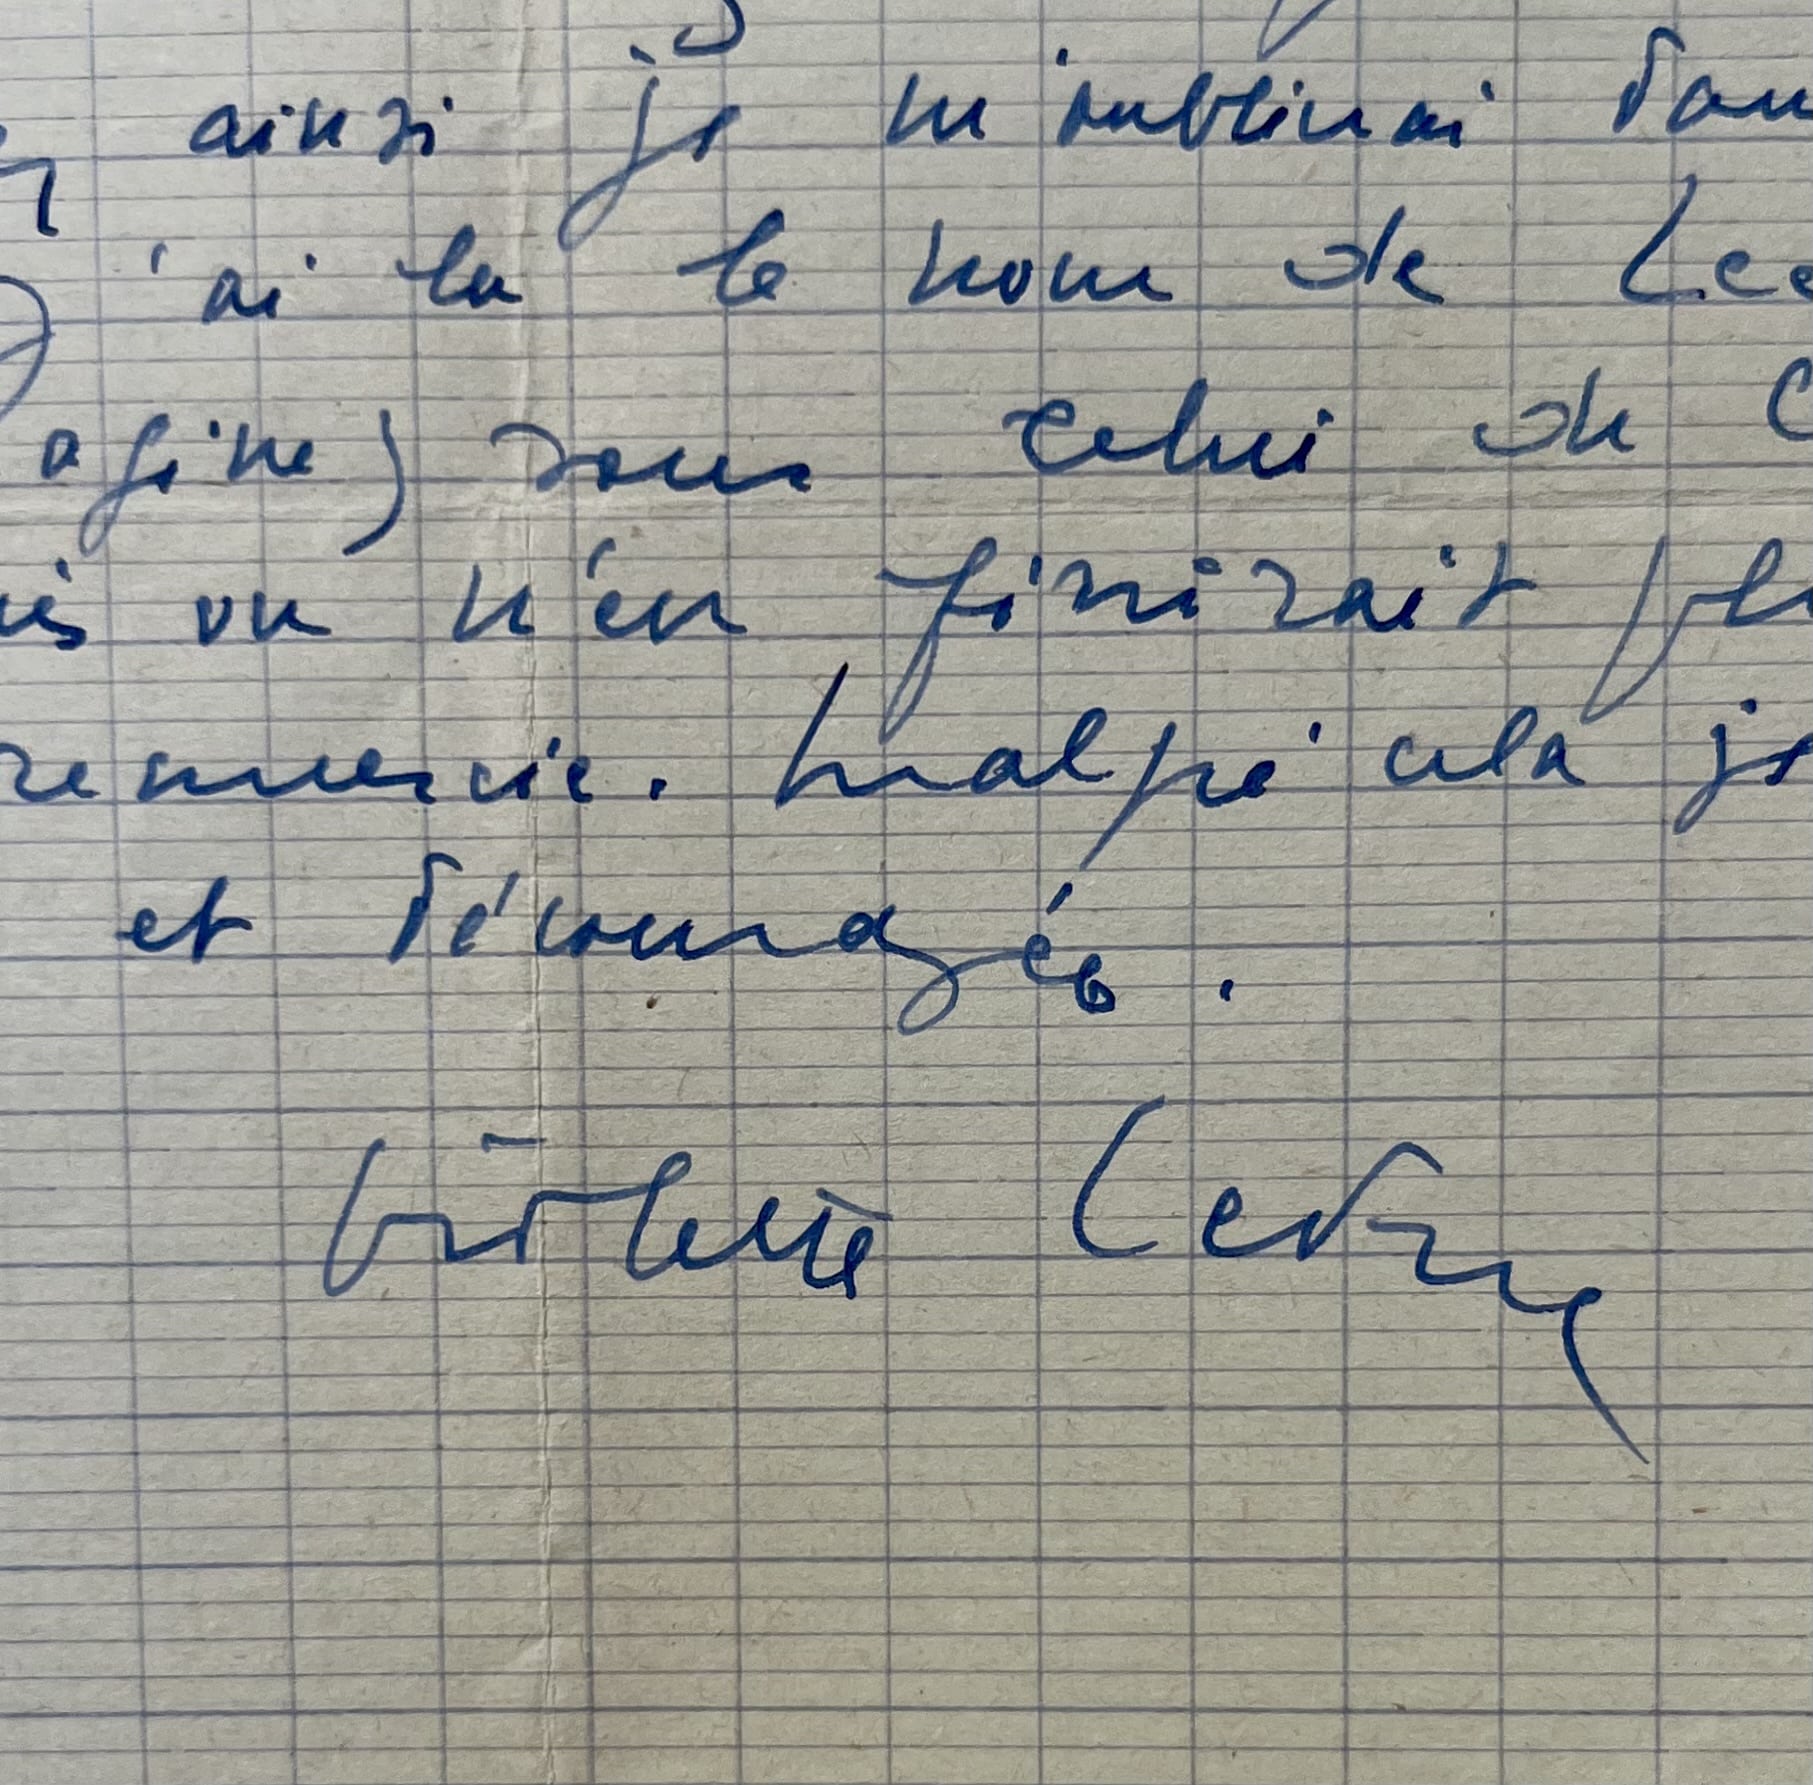 ainsi je m'oublierai dans
j'ai lu le nom de Lee
agine) sous celui de C
is on n'en finirait plu
remercie. Malgré cela je
et découragée.
Violette Leduc